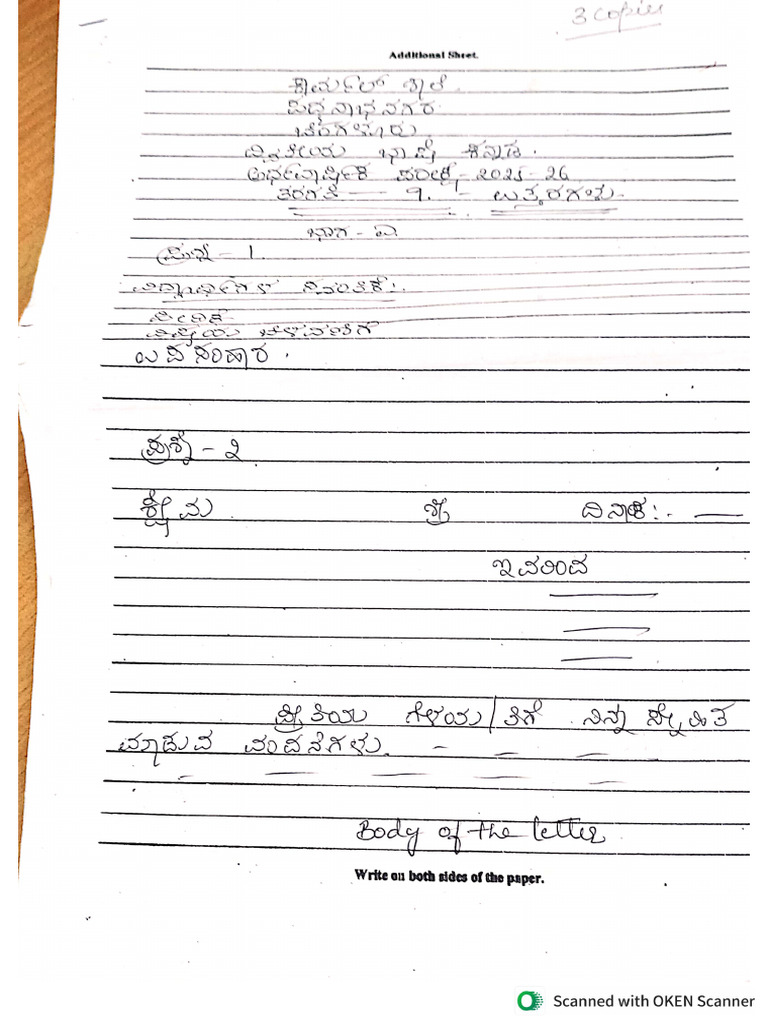 3 copies
Additional Sheet.
ಕಾರ್ಮೆಲ್ ಶಾಲೆ.
ಪದ್ಮನಾಭನಗರ
ಬೆಂಗಳೂರು.
ದ್ವಿತೀಯ ಭಾಷೆ ಕನ್ನಡ.
ಅರ್ಧವಾರ್ಷಿಕ ಪರೀಕ್ಷೆ - 2025 - 26
ತರಗತಿ - 9. - ಉತ್ತರಗಳು.
ಭಾಗ - ಎ
ಪ್ರಶ್ನೆ - 1.
ವಿದ್ಯಾರ್ಥಿಗಳ
ಪೀಠಿಕೆ
ವಿಷಯ ಬೆಳವಣಿಗೆ
ಉಪಸಂಹಾರ.
ಪ್ರಶ್ನೆ - ೨
ಕ್ಷೇಮ ಶ್ರೀ ದಿನಾಂಕ:- —
ಇವರಿಂದ
ಪ್ರೀತಿಯ ಗೆಳೆಯ/ತಿಗೆ ನಿನ್ನ ಸ್ನೇಹಿತ
ಮಾಡುವ ವಂದನೆಗಳು. - — —
Body of the letter
Write on both sides of the paper.
Scanned with OKEN Scanner